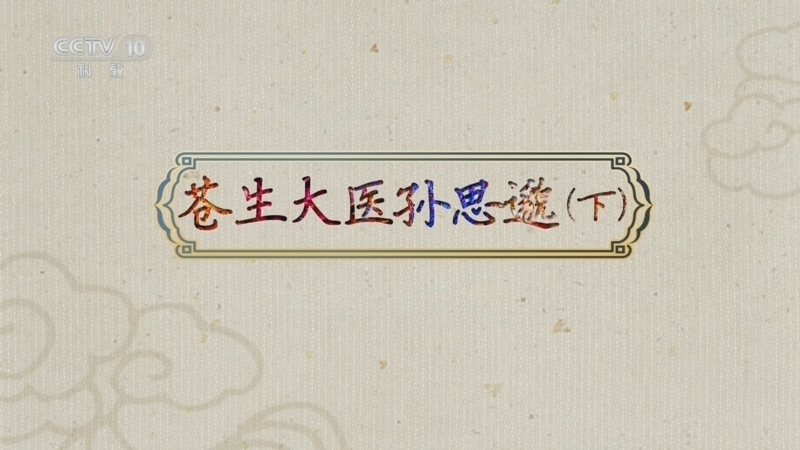 CCTV 10
科教
苍生大医孙思邈(下)